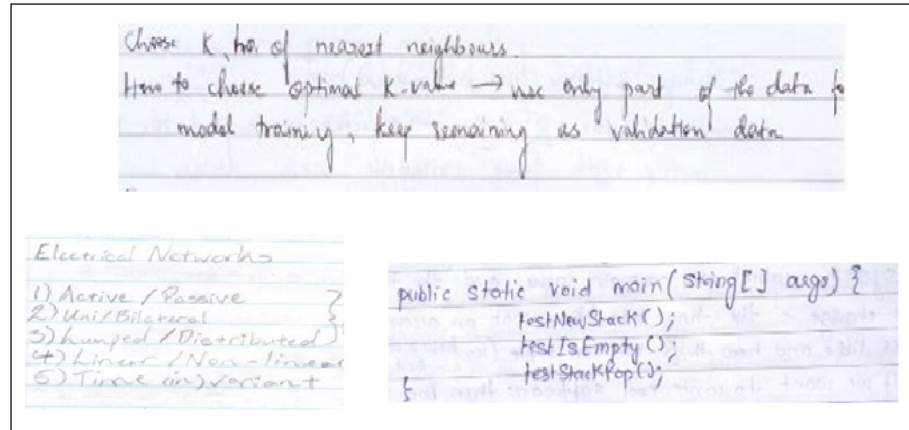 Choose K, no. of nearest neighbours.
How to choose optimal K-value → use only part of the data fo
model training, keep remaining as validation data
Electrical Networks
1) Active / Passive
2) Uni/Bilateral
3) Lumped / Distributed
4) Linear / Non-linear
5) Time (in)variant
public static void main(String[] args) {
testNewStack();
testIsEmpty();
testStackPop();
}